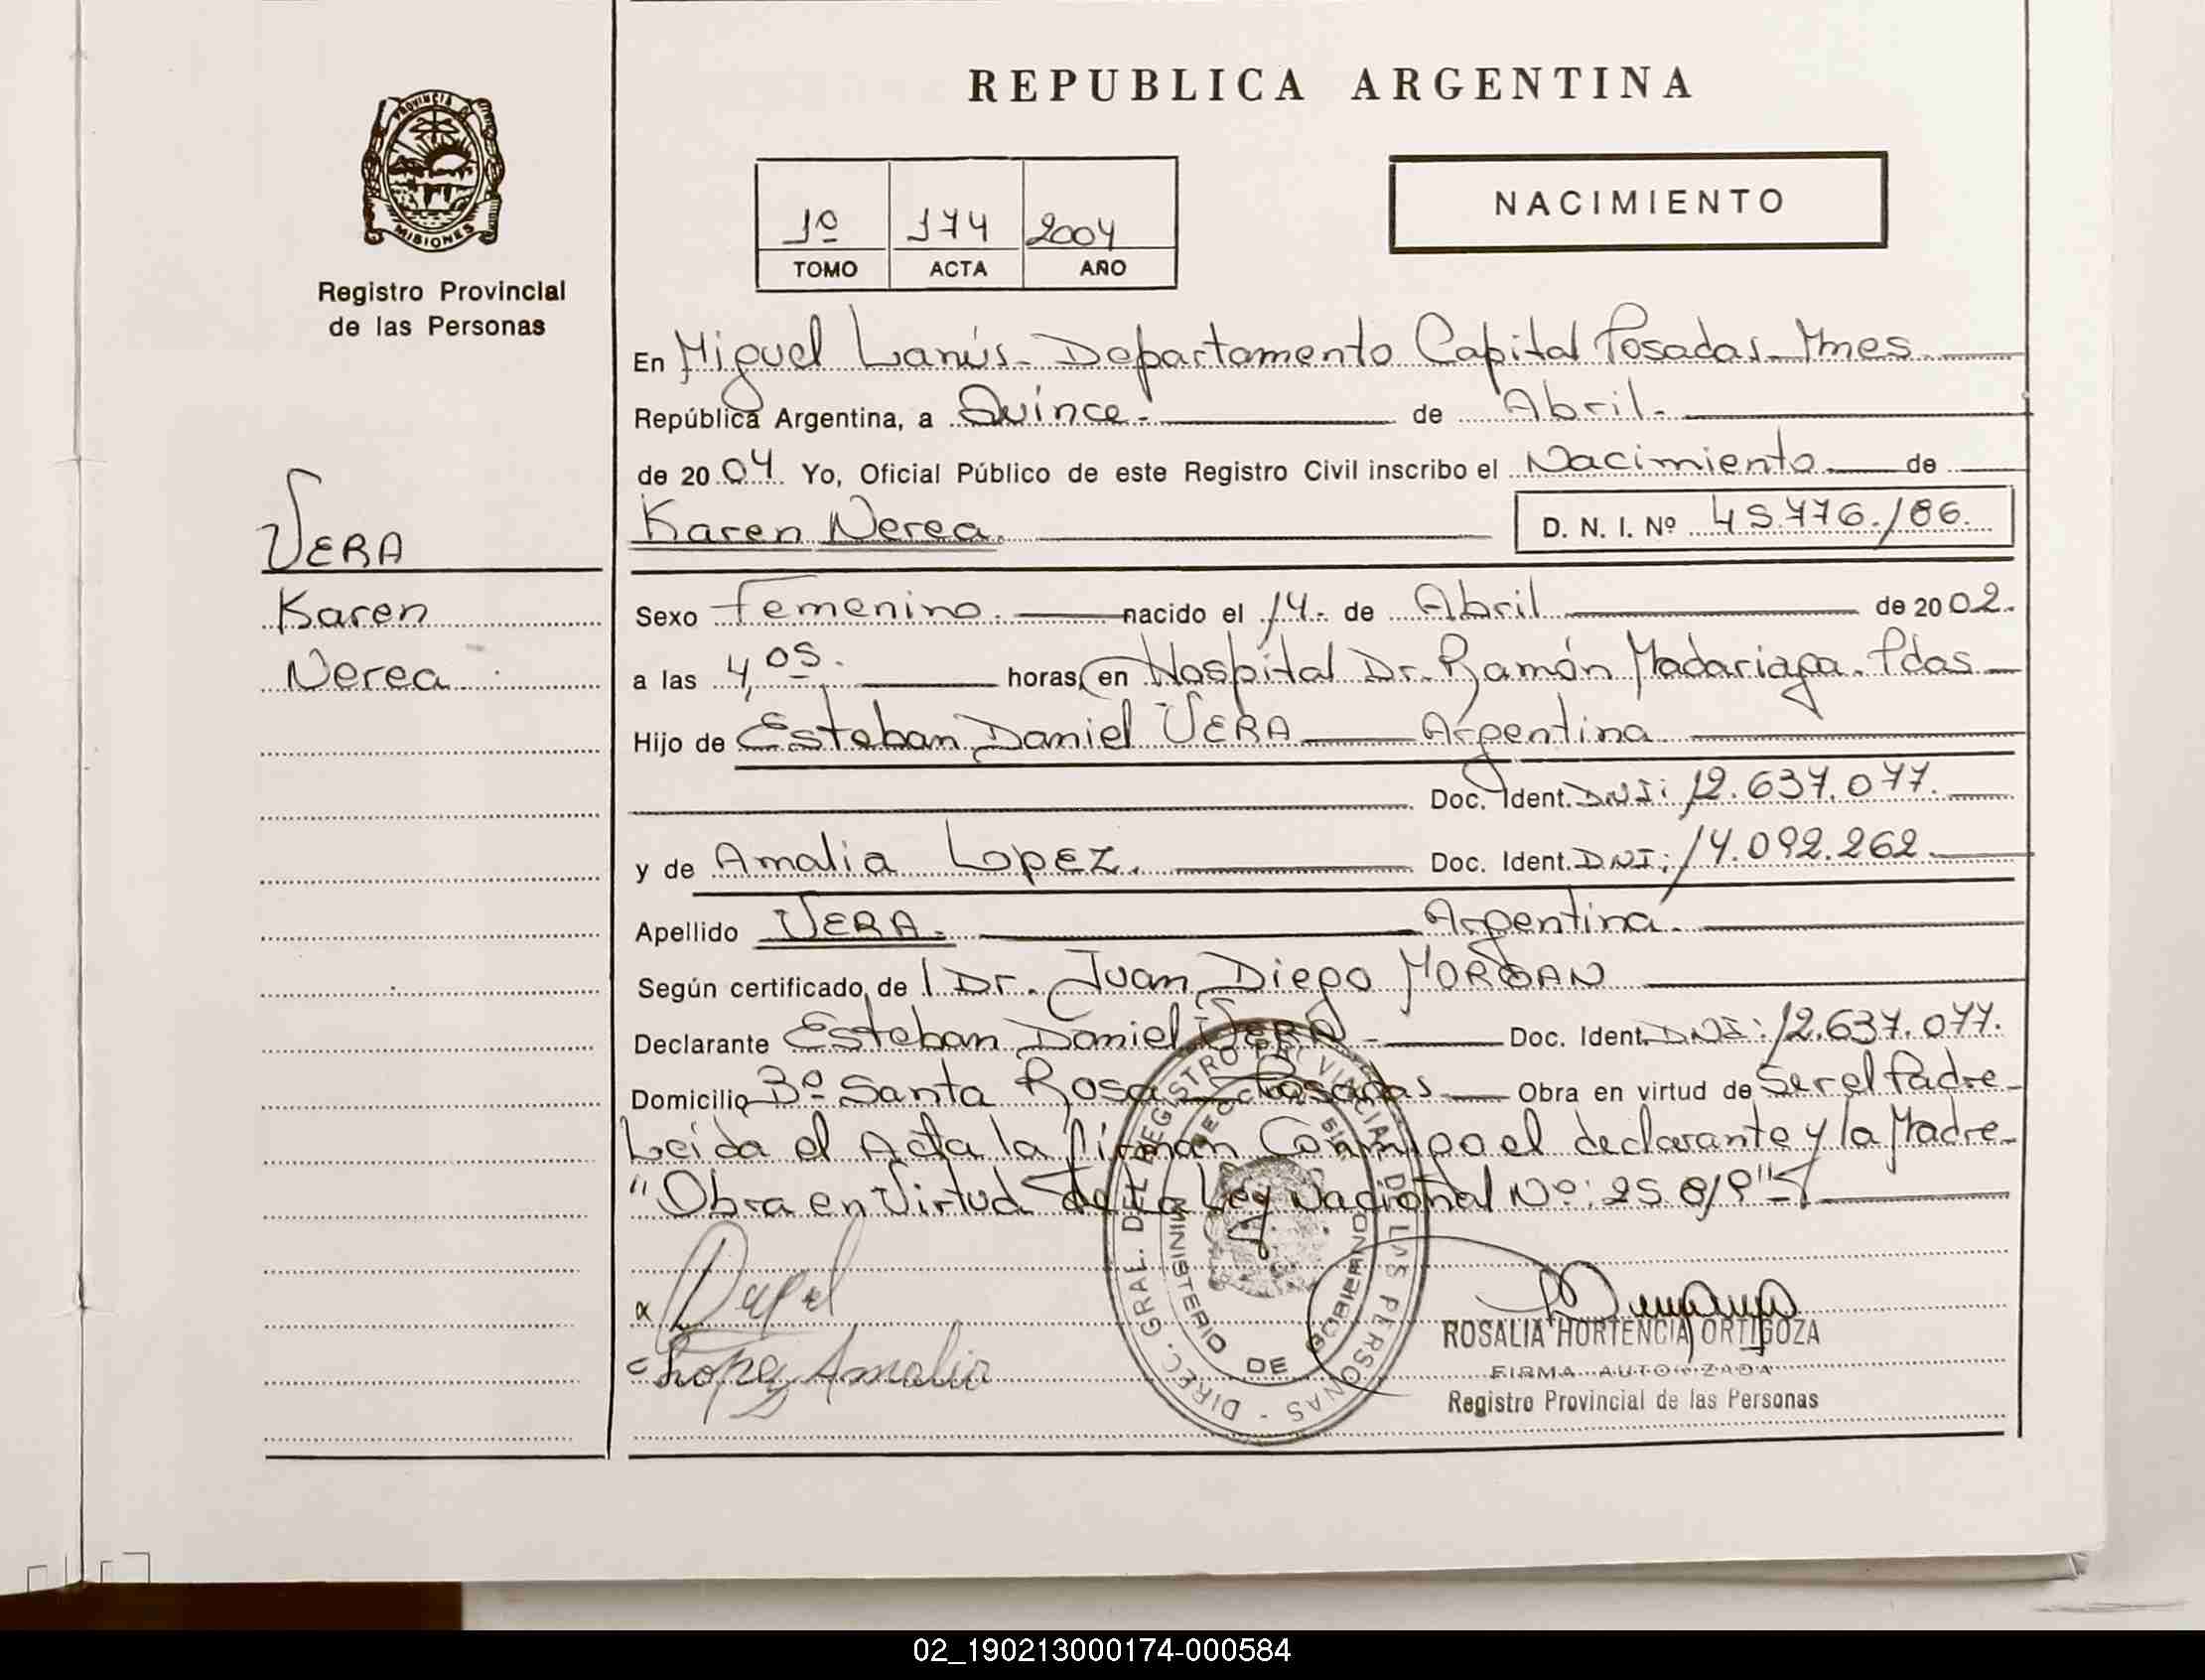 REPUBLICA ARGENTINA
PROVINCIA DE MISIONES
Registro Provincial
de las Personas
NACIMIENTO
1º 174 2004
TOMO ACTA AÑO
En Miguel Lanús - Departamento Capital Posadas - Mnes
República Argentina, a Quince - de Abril -
de 2004 Yo, Oficial Público de este Registro Civil inscribo el Nacimiento de
Karen Nerea. D. N. I. Nº 45.776.186.
VERA
Karen
Nerea
Sexo Femenino. nacido el 14. de Abril de 2002.
a las 4,05. horas, en Hospital Dr. Ramón Madariaga. Pdas
Hijo de Esteban Daniel VERA Argentina
Doc. Ident. DNI: 12.637.077.
y de Amalia Lopez. Doc. Ident. DNI: 14.092.262
Apellido VERA. Argentina.
Según certificado de l Dr. Juan Diego MORGAN
Declarante Esteban Daniel VERA - Doc. Ident. DNI: 12.637.077.
Domicilio Bº Santa Rosa - Posadas Obra en virtud de Ser el Padre
Leida el Acta la firman Conmigo el declarante y la Madre
"Obra en Virtud de la Ley Nacional Nº: 25.819"
DIREC. GRAL. DEL REGISTRO PROVINCIAL DE LAS PERSONAS
MINISTERIO DE GOBIERNO
Lopez Amalia
ROSALIA HORTENCIA ORTIGOZA
FIRMA AUTORIZADA
Registro Provincial de las Personas
02_190213000174-000584